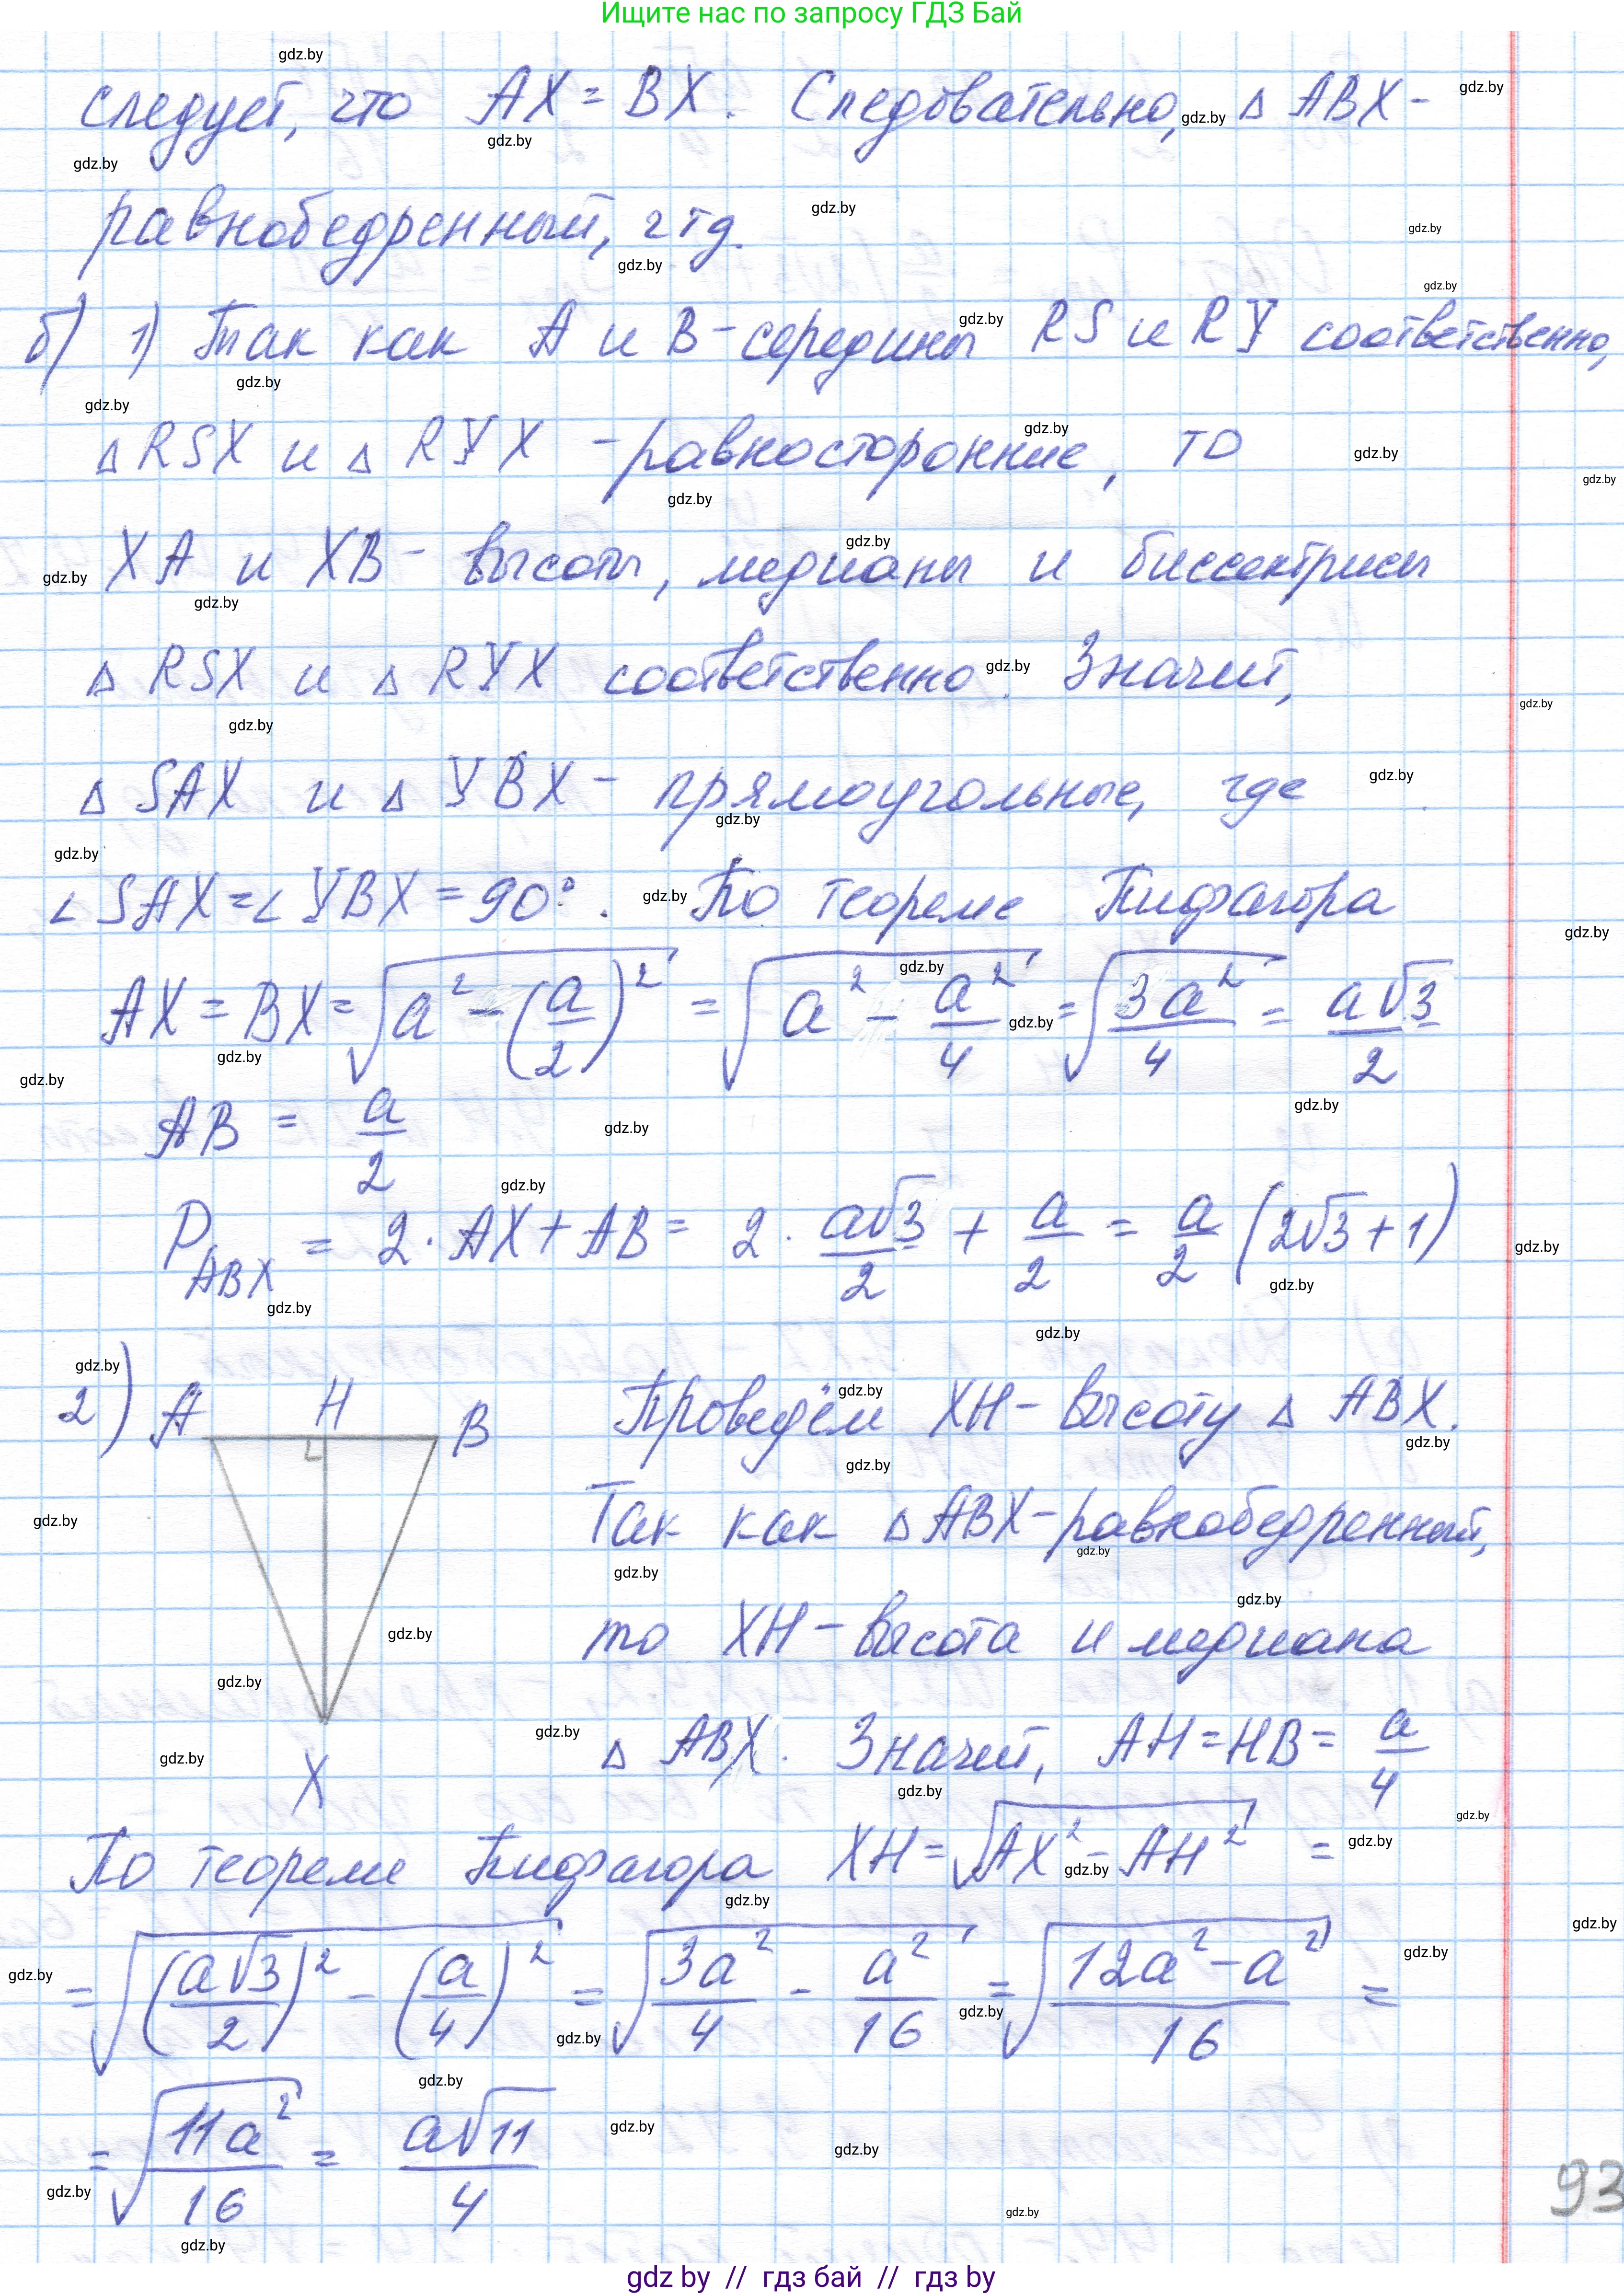 Ищите нас по запросу ГДЗ Бай
следует, что AX = BX. Следовательно, △ ABX -
равнобедренный, чтд.
б) 1) Так как A и B - середины RS и RY соответственно,
△ RSX и △ RYX - равносторонние, то
XA и XB - высоты, медианы и биссектрисы
△ RSX и △ RYX соответственно. Значит,
△ SAX и △ YBX - прямоугольные, где
∠ SAX = ∠ YBX = 90°. По теореме Пифагора
AX = BX = √(a² - (a/2)²) = √(a² - a²/4) = √(3a²/4) = a√3/2
AB = a/2
P_ABX = 2 · AX + AB = 2 · a√3/2 + a/2 = a/2 (2√3 + 1)
2) A H B X
Проведём XH - высоту △ ABX.
Так как △ ABX - равнобедренный,
то XH - высота и медиана
△ ABX. Значит, AH = HB = a/4
По теореме Пифагора XH = √(AX² - AH²) =
= √((a√3/2)² - (a/4)²) = √(3a²/4 - a²/16) = √((12a² - a²)/16) =
= √(11a²/16) = a√11/4
93
gdz by // гдз бай // гдз by